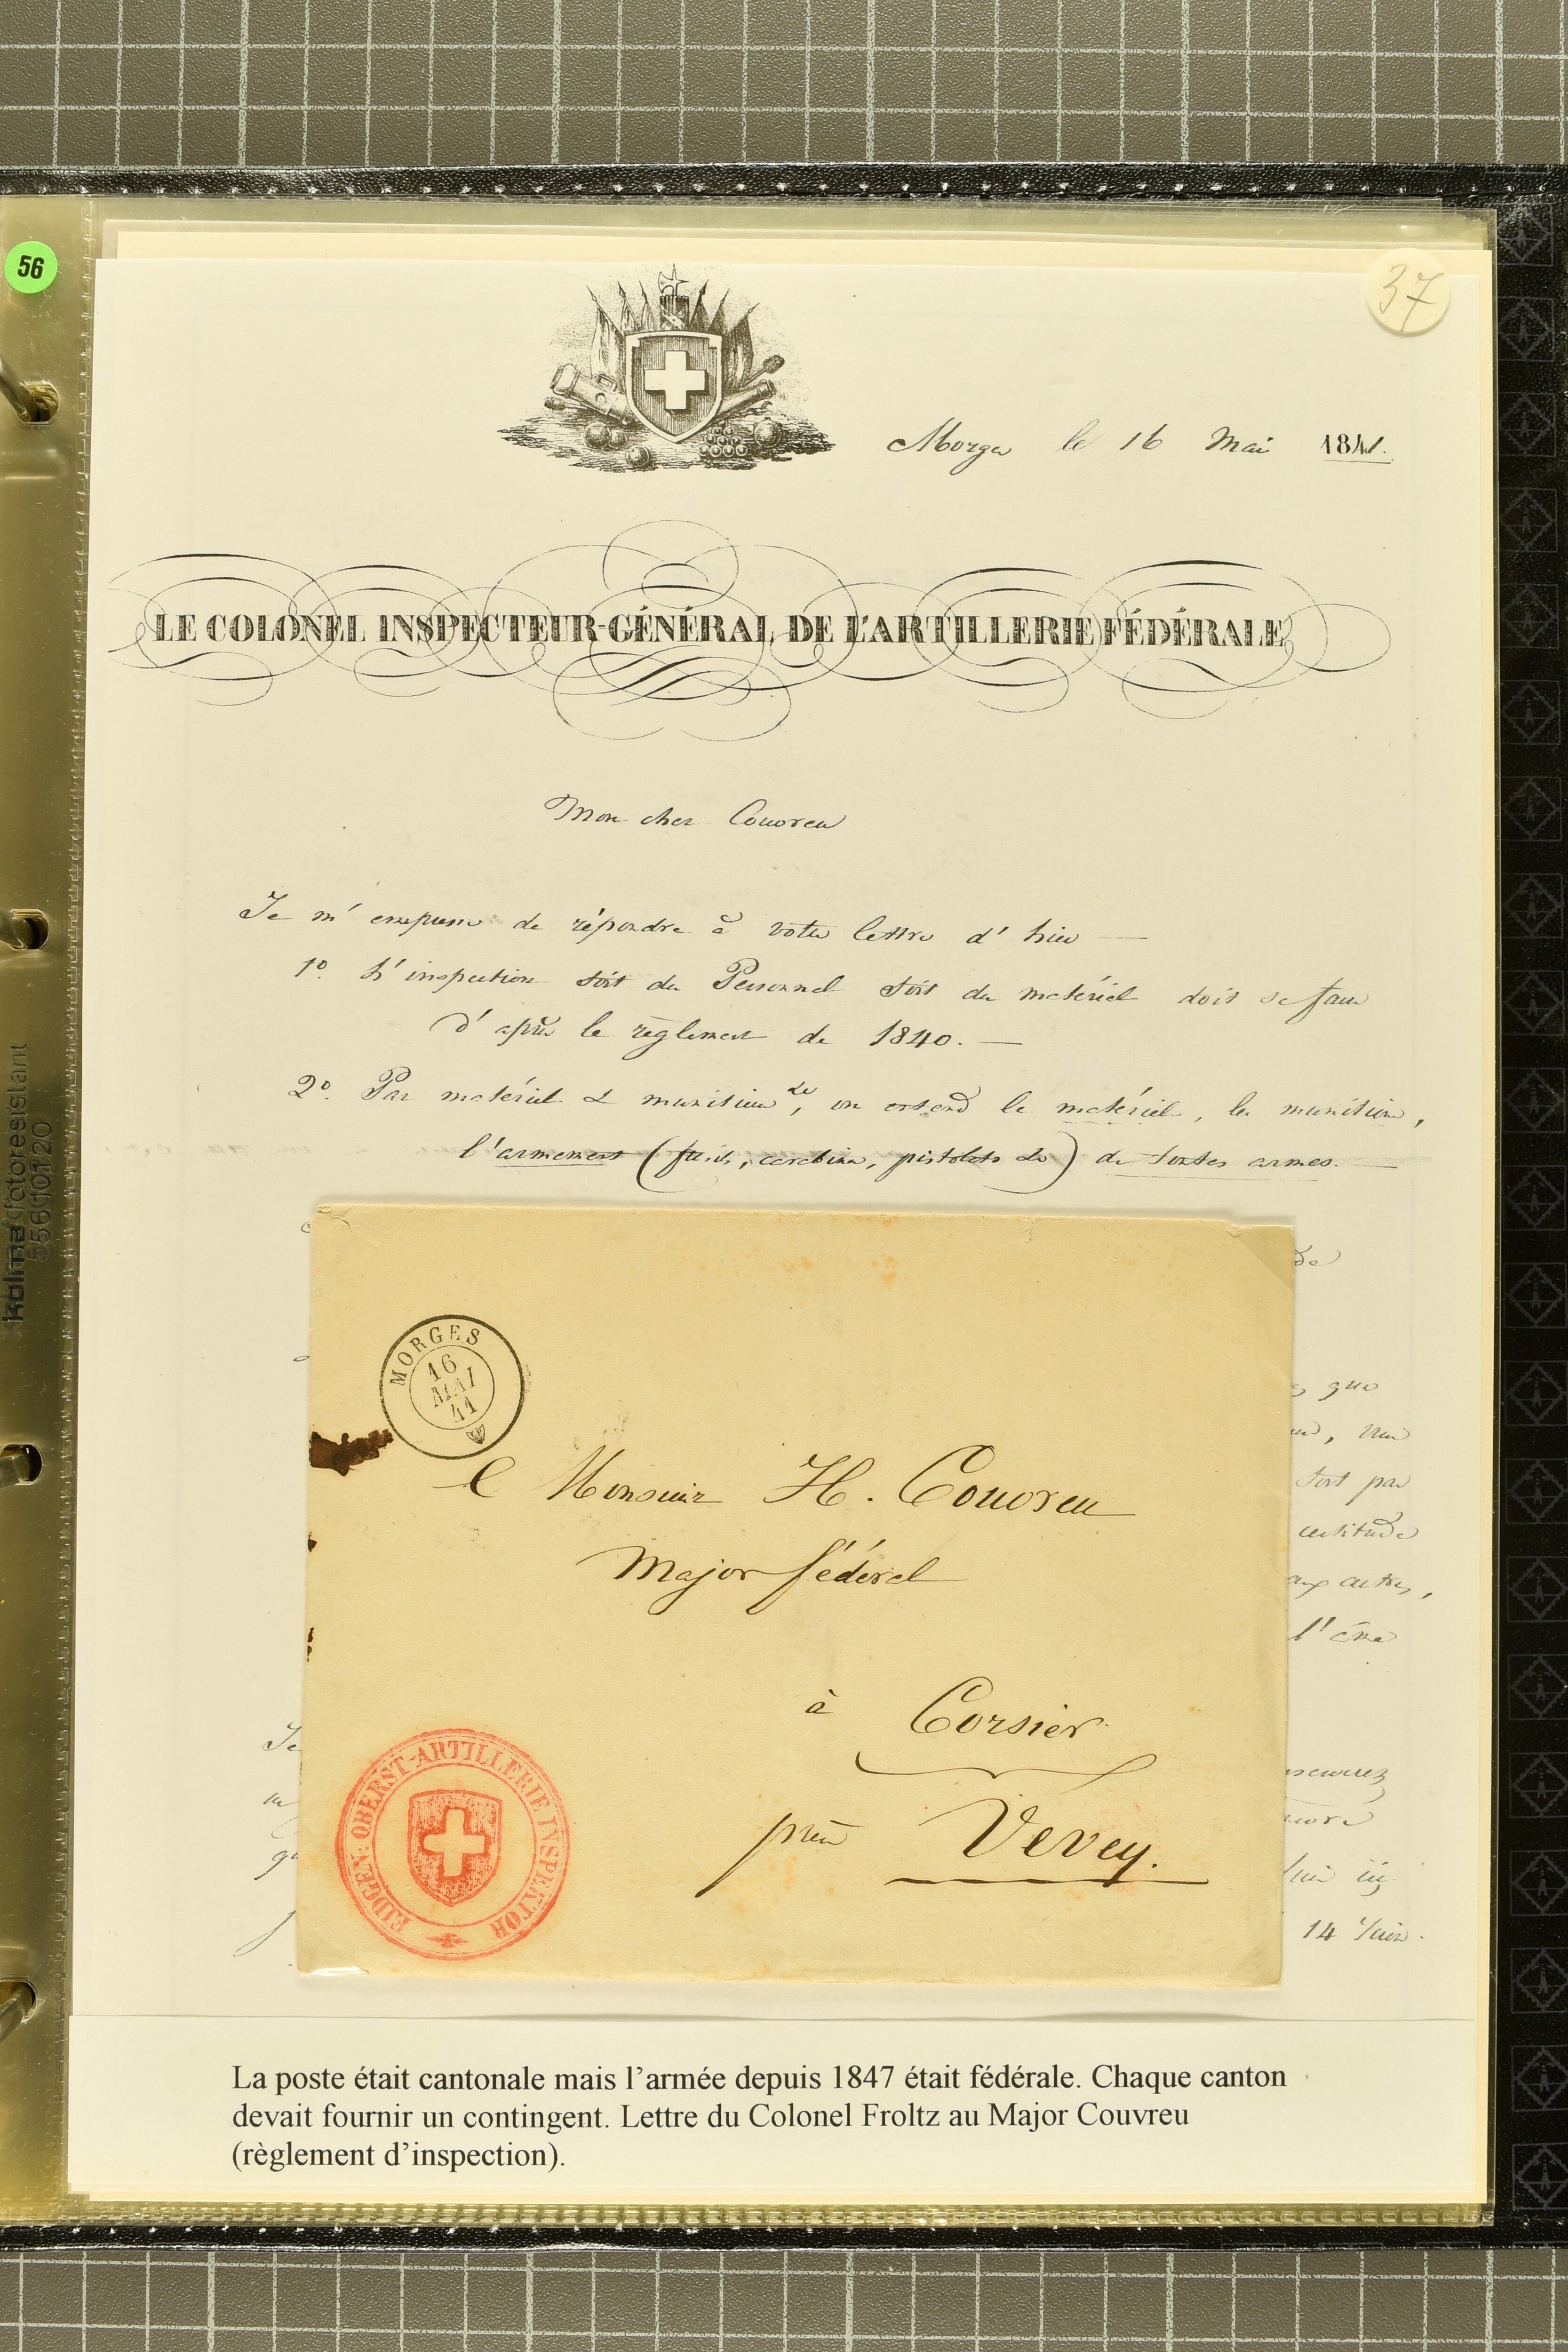 56
37
Morges le 16 Mai 1841.
LE COLONEL INSPECTEUR-GÉNÉRAL DE L'ARTILLERIE FÉDÉRALE
Mon cher Couvreu
Je m'empresse de répondre à votre lettre d'hier —
1º. L'inspection soit du Personnel soit du matériel doit se faire
d'après le règlement de 1840. —
2º. Par matériel & munitions &c, on entend le matériel, les munitions,
l'armement (fusils, carabines, pistolets &c) de toutes armes. —
de
que
soit par
certitude
aux autres,
Je
14 Juin.
MORGES
16
MAI
41
A Monsieur H. Couvreu
Major fédéral
à Corsier
près Vevey.
EIDGEN: OBERST-ARTILLERIE INSPEKTOR
kolma fotoresistant
La poste était cantonale mais l'armée depuis 1847 était fédérale. Chaque canton
devait fournir un contingent. Lettre du Colonel Froltz au Major Couvreu
(règlement d'inspection).